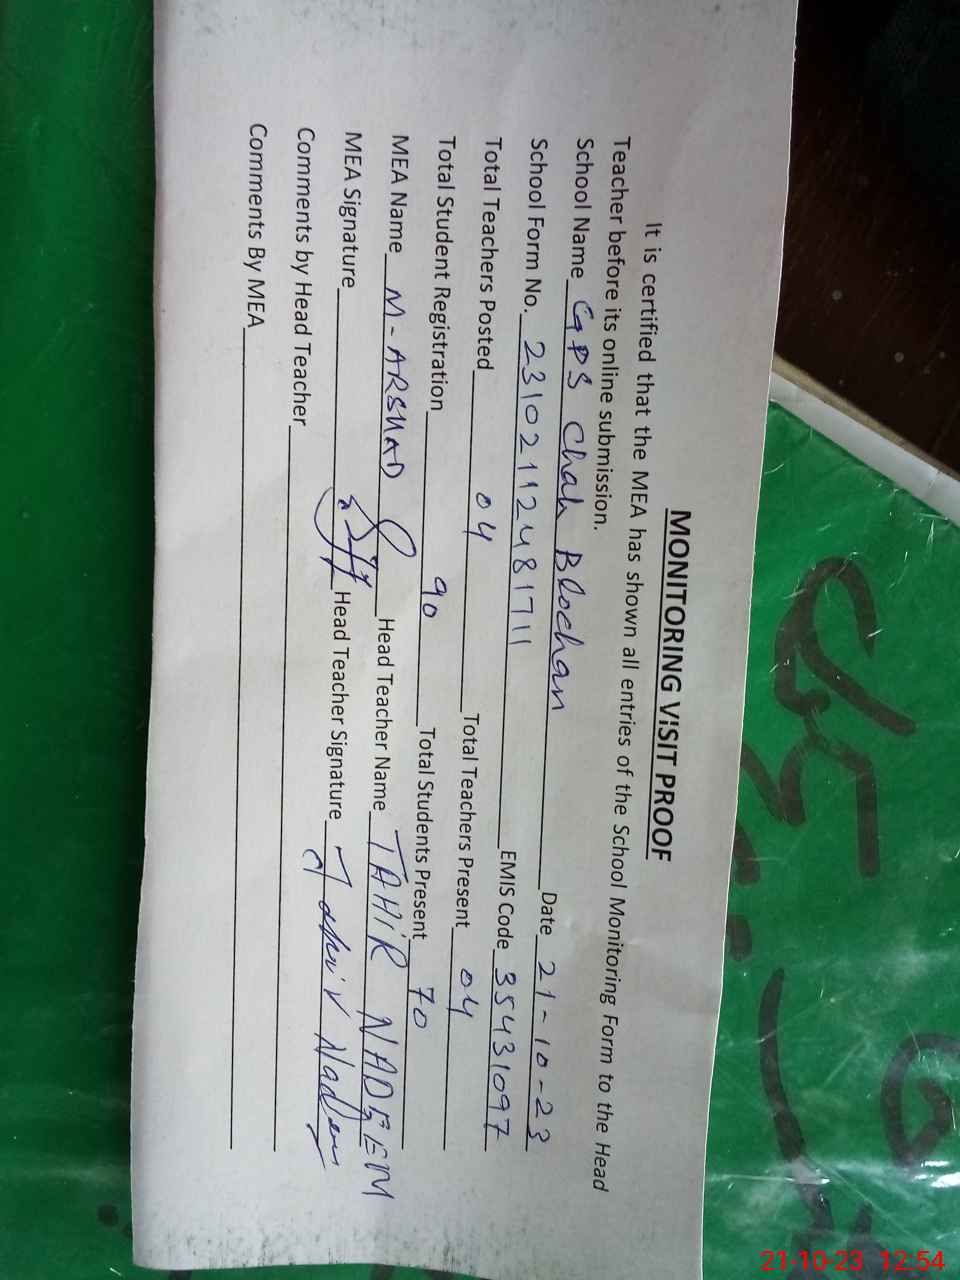 MONITORING VISIT PROOF
It is certified that the MEA has shown all entries of the School Monitoring Form to the Head
Teacher before its online submission.
School Name GPS Chah Blochan Date 21-10-23
School Form No. 23102112481711 EMIS Code 35431097
Total Teachers Posted 04 Total Teachers Present 04
Total Student Registration 90 Total Students Present 70
MEA Name M-ARSHAD Head Teacher Name TAHIR NADEEM
MEA Signature Head Teacher Signature Tahir Nadeem
Comments by Head Teacher
Comments By MEA
21-10-23 12:54